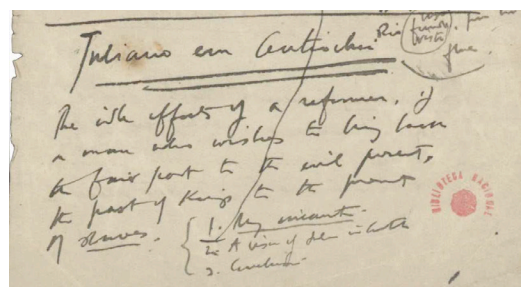 Juliano em Antiochia.
The idle efforts of a reformer, of
a man who wishes to bring back
the fair past to the evil present,
the past of Kings to the present
of slaves.
1. My incanta
2. A vision of in
3. Conclusion.
BIBLIOTECA NACIONAL